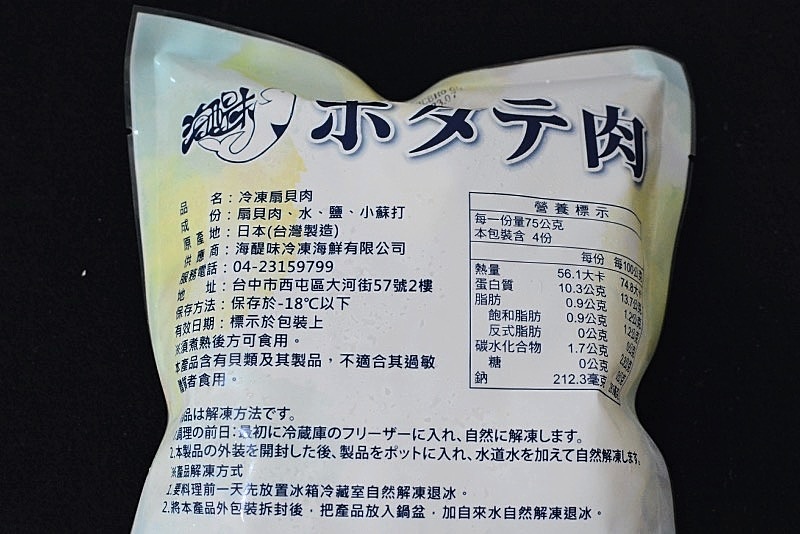 海醍味 ホタテ肉
品名：冷凍扇貝肉
成份：扇貝肉、水、鹽、小蘇打
原產地：日本(台灣製造)
供應商：海醍味冷凍海鮮有限公司
服務電話：04-23159799
地址：台中市西屯區大河街57號2樓
保存方法：保存於-18℃以下
有效日期：標示於包裝上
※須煮熟後方可食用。
本產品含有貝類及其製品，不適合其過敏
體質者食用。
營養標示
每一份量75公克
本包裝含 4份
每份 每100公克
熱量 56.1大卡 74.8大卡
蛋白質 10.3公克 13.7公克
脂肪 0.9公克 1.2公克
飽和脂肪 0.9公克 1.2公克
反式脂肪 0公克
碳水化合物 1.7公克
糖 0公克
鈉 212.3毫克
品は解凍方法です。
調理の前日：最初に冷蔵庫のフリーザーに入れ、自然に解凍します。
2.本製品の外装を開封した後、製品をポットに入れ、水道水を加えて自然解凍します。
※產品解凍方式
1.要料理前一天先放置冰箱冷藏室自然解凍退冰。
2.將本產品外包裝拆封後，把產品放入鍋盆，加自來水自然解凍退冰。